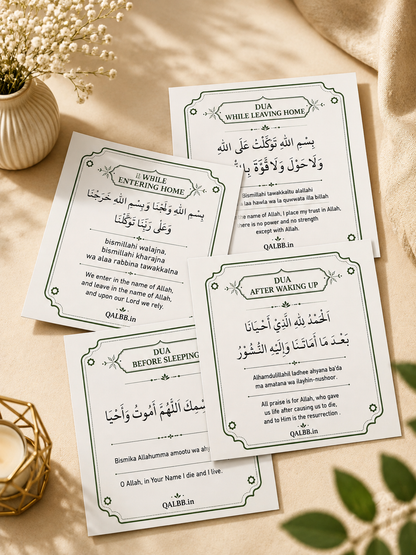 DUA
WHILE LEAVING HOME
بِسْمِ اللهِ تَوَكَّلْتُ عَلَى اللهِ
وَلَا حَوْلَ وَلَا قُوَّةَ
Bismillahi tawakkaltu alallahi
la hawla wa la quwwata illa billah
the name of Allah, I place my trust in Allah,
there is no power and no strength
except with Allah.
QALBB.in
WHILE
ENTERING HOME
بِسْمِ اللهِ وَلَجْنَا وَبِسْمِ اللهِ خَرَجْنَا
وَعَلَى رَبِّنَا تَوَكَّلْنَا
bismillahi walajna,
bismillahi kharajna
wa alaa rabbina tawakkalna
We enter in the name of Allah,
and leave in the name of Allah,
and upon our Lord we rely.
QALBB.in
DUA
AFTER WAKING UP
الْحَمْدُ لِلّٰهِ الَّذِيْ أَحْيَانَا
بَعْدَ مَا أَمَاتَنَا وَإِلَيْهِ النُّشُوْرُ
Alhamdulillahil ladhee ahyana ba'da
ma amatana wa ilayhin-nushoor.
All praise is for Allah, who gave
us life after causing us to die,
and to Him is the resurrection.
QALBB.in
DUA
BEFORE SLEEPING
اللَّهُمَّ أَمُوتُ وَأَحْيَا
Bismika Allahumma amootu wa
O Allah, in Your Name I die and I live.
QALBB.in